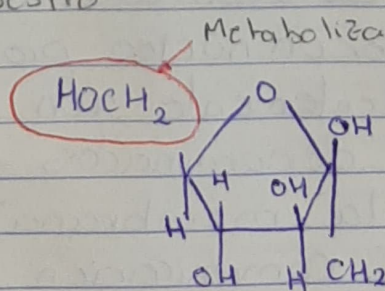 Metaboliza
HOCH2
O
OH
H
OH
H
OH
H
CH2